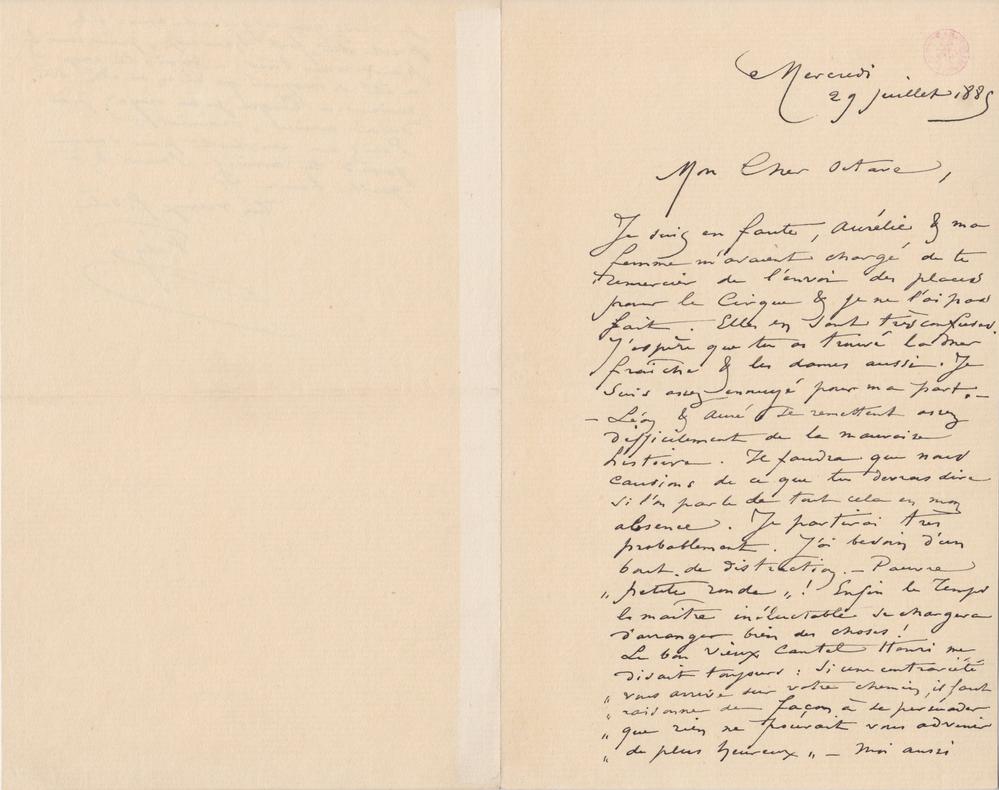 Mercredi
29 juillet 1885
Mon Cher Octave,
Je suis en faute, Aurélie & ma
femme m'avaient chargé de te
remercier de l'envoi des places
pour le Cirque & je ne l'ai pas
fait. Elles en sont très confuses.
J'espère que tu as trouvé la mer
fraîche & les dames aussi. Je
suis assez ennuyé pour ma part. –
– Léon & Auré se remettent assez
difficilement de la mauvaise
histoire. Il faudra que nous
causions de ce que tu devras dire
si l'on parle de tout cela en mon
absence. Je partirai très
probablement. J'ai besoin d'un
bout de distraction. – Pauvre
„ petite ronde „ ! Enfin le Temps
le maître inéluctable se chargera
d'arranger bien des choses !
Le bon vieux Cantel Henri me
disait toujours : Si une contrariété
„ vous arrive sur votre chemin, il faut
„ raisonner de façon à se persuader
„ que rien ne pouvait vous advenir
„ de plus heureux „ – Moi aussi